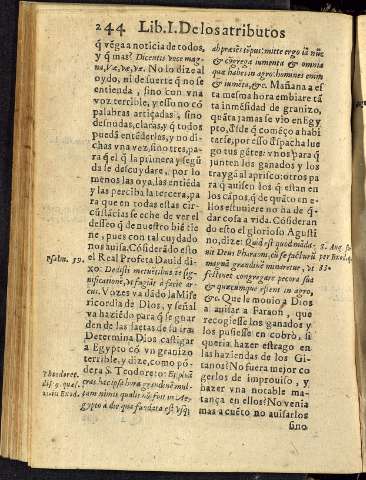 244 Lib. I. De los atributos
q̃ vẽga a noticia de todos,
y q̃ mas? Dicentis voce mag-
na, Væ, væ, væ. No lo dize al
oydo, y de suerte q̃ no se
entienda, sino con vna
voz terrible, y esso no cõ
palabras artiçadas, sino
desnudas, claras, y q̃ todos
puedã entẽderlas, y no di-
chas vna vez, sino tres, pa-
ra q̃ el q̃ la primera y segũ
da se descuydare, por lo
menos las oya, las entiẽda
y las perciba la tercera, pa
ra que en todas estas cir-
cũstãcias se eche de ver el
desseo q̃ de nuestro biẽ tie
ne, pues con tal cuydado
nos auisa. Cõsideró esto
el Real Profeta Dauid di-
xo. Dedisti metuẽtibus te sig-
nificationẽ, vt fugiãt à facie ar-
cus. Vozes va dãdo la Mise
ricordia de Dios, y señal
va haziẽdo para q̃ se guar
den de las saetas de su ira.
Determina Dios castigar
a Egypto cõ vn granizo
terrible, y dize, como põ-
dera S. Teodoreto:
cras hac ipsa hora grandinẽ mul-
tam nimis qualis nõ fuit in Ae-
gypto a die qua fundata est vsq;
Psalm. 59.
Theodoret.
ab præsẽs tẽpus: mitte ergo iã nũc
& cõgrega iumenta & omnia
quæ habes in agro: homines enim
& iumẽta, &c. Mañana a es
ta mesma hora embiare tã
ta inmẽsidad de granizo,
quãta jamas se vio en Egy
pto, desde q̃ comẽço a habi
tarse, por esso despacha lue
go tus gẽtes: vnos para q̃
junten los ganados y los
traygã al aprisco: otros pa
ra q̃ auisen los q̃ estan en
los cãpos, q̃ de quãto en e-
llos estuuiere no ha de q̃-
dar cosa a vida. Cõsideran
do esto el glorioso Agusti
no, dize: Quid est quod mãda-
uit Deus Pharaoni, cũ se facturũ
magnã grandinẽ minaretur, vt
festinet congregare pecora sua
& quæcumque essent in agro,
&c. Que le mouio a Dios
a auisar a Faraon, que
recogiesse los ganados y
los pusiesse en cobro, si
queria hazer estrago en
las haziendas de los Gi-
tanos? No fuera mejor co
gerlos de improuiso, y
hazer vna notable ma-
tança en ellos? No venia
mas a cuẽto no auisarlos
sino